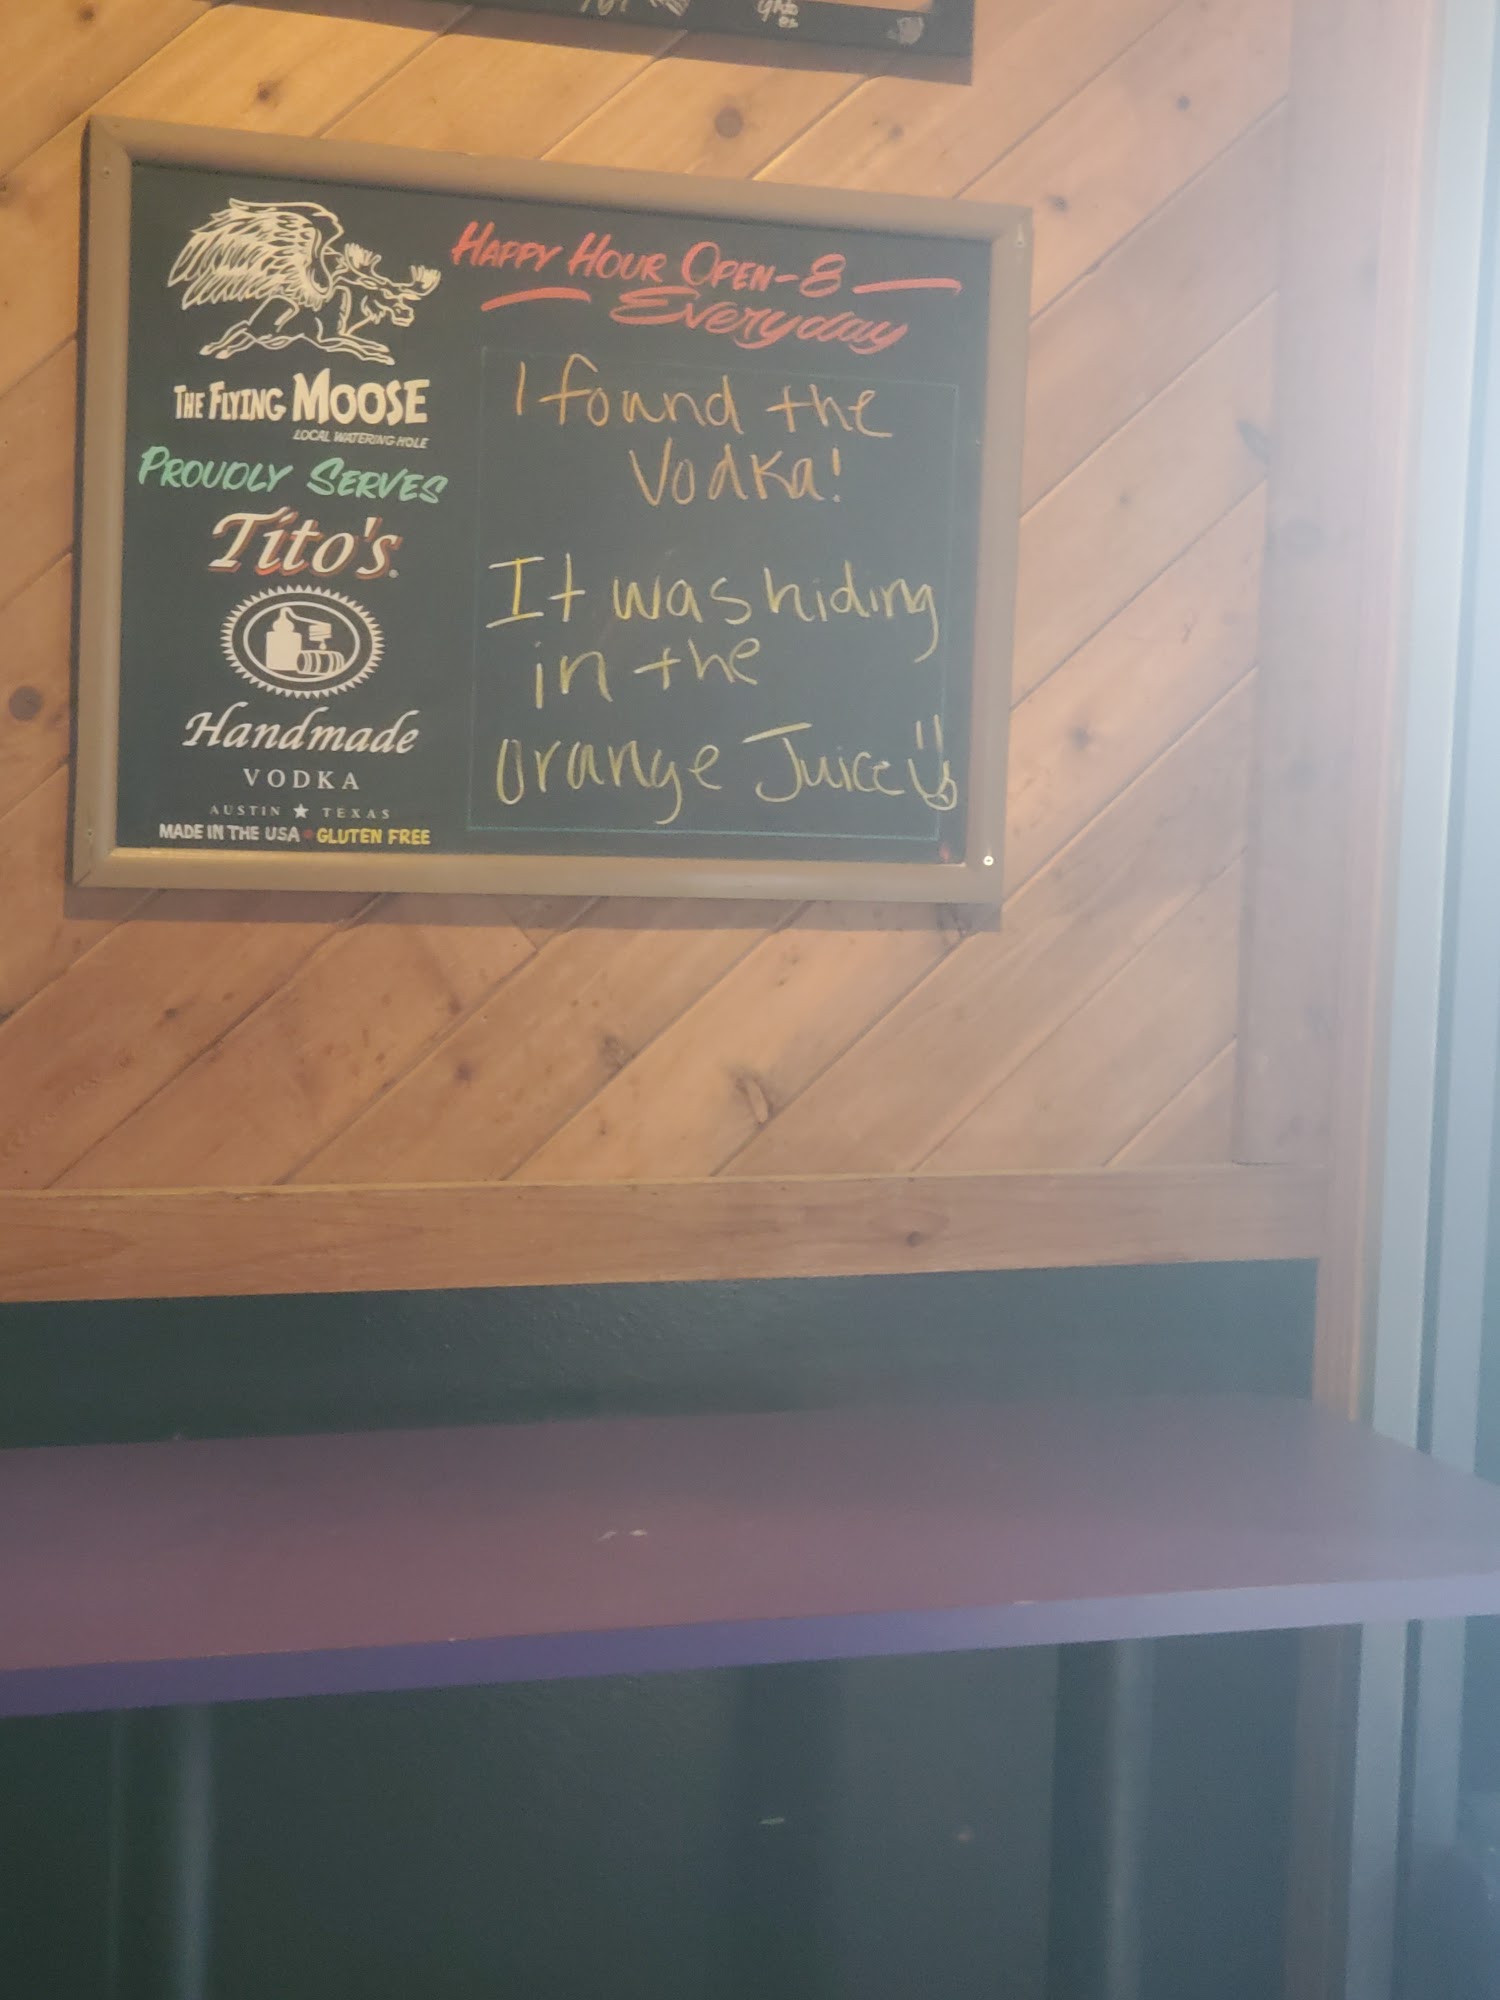 THE FLYING MOOSE
LOCAL WATERING HOLE
PROUDLY SERVES
Tito's®
Handmade
VODKA
AUSTIN ★ TEXAS
MADE IN THE USA • GLUTEN FREE
HAPPY HOUR OPEN-8
Everyday
I found the
Vodka!
It was hiding
in the
orange Juice!!